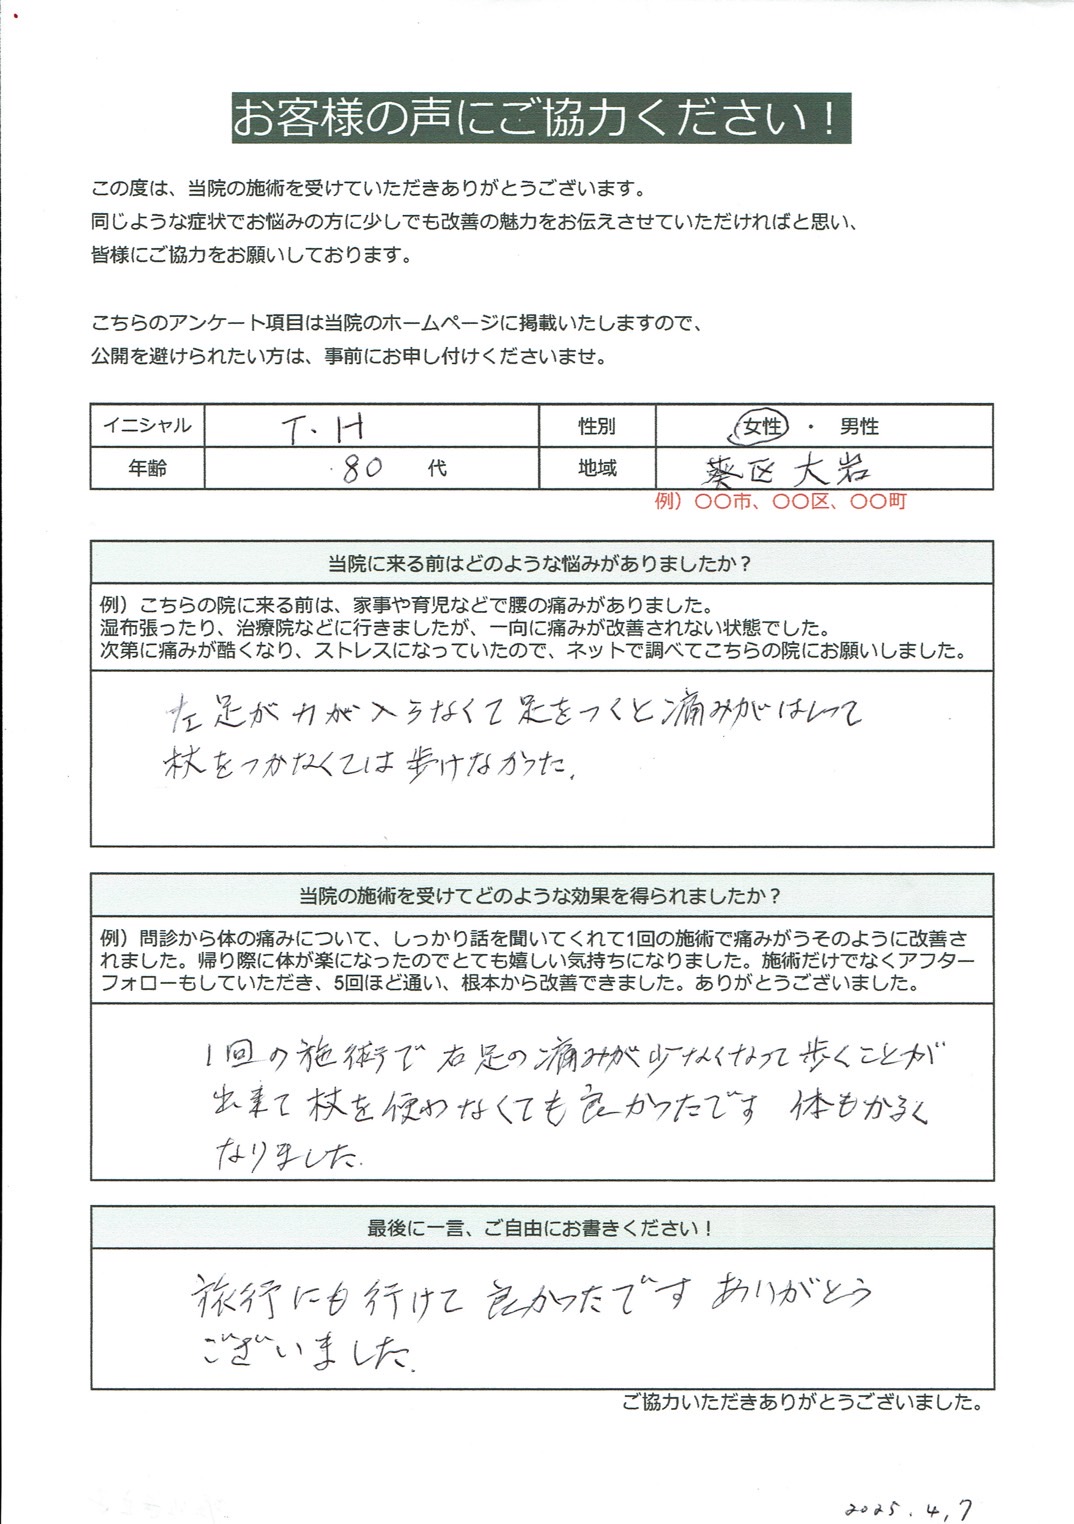 お客様の声にご協力ください！
この度は、当院の施術を受けていただきありがとうございます。
同じような症状でお悩みの方に少しでも改善の魅力をお伝えさせていただければと思い、
皆様にご協力をお願いしております。
こちらのアンケート項目は当院のホームページに掲載いたしますので、
公開を避けられたい方は、事前にお申し付けくださいませ。
イニシャル T.H 性別 女性 ・ 男性
年齢 80 代 地域 葵区 大岩
例）〇〇市、〇〇区、〇〇町
当院に来る前はどのような悩みがありましたか？
例）こちらの院に来る前は、家事や育児などで腰の痛みがありました。
湿布張ったり、治療院などに行きましたが、一向に痛みが改善されない状態でした。
次第に痛みが酷くなり、ストレスになっていたので、ネットで調べてこちらの院にお願いしました。
左足が力が入らなくて足をつくと痛みがはしって
杖をつかなくては歩けなかった.
当院の施術を受けてどのような効果を得られましたか？
例）問診から体の痛みについて、しっかり話を聞いてくれて1回の施術で痛みがうそのように改善さ
れました。帰り際に体が楽になったのでとても嬉しい気持ちになりました。施術だけでなくアフター
フォローもしていただき、5回ほど通い、根本から改善できました。ありがとうございました。
1回の施術で右足の痛みが少なくなって歩くことが
出来て杖を使わなくても良かったです 体もかるく
なりました.
最後に一言、ご自由にお書きください！
旅行にも行けて良かったです ありがとう
ございました.
ご協力いただきありがとうございました。
2025.4.7